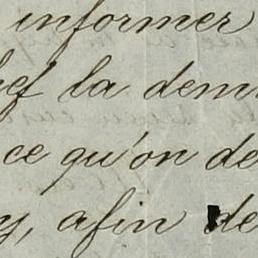 informer
ef la dem
ce qu'on de
y, afin de